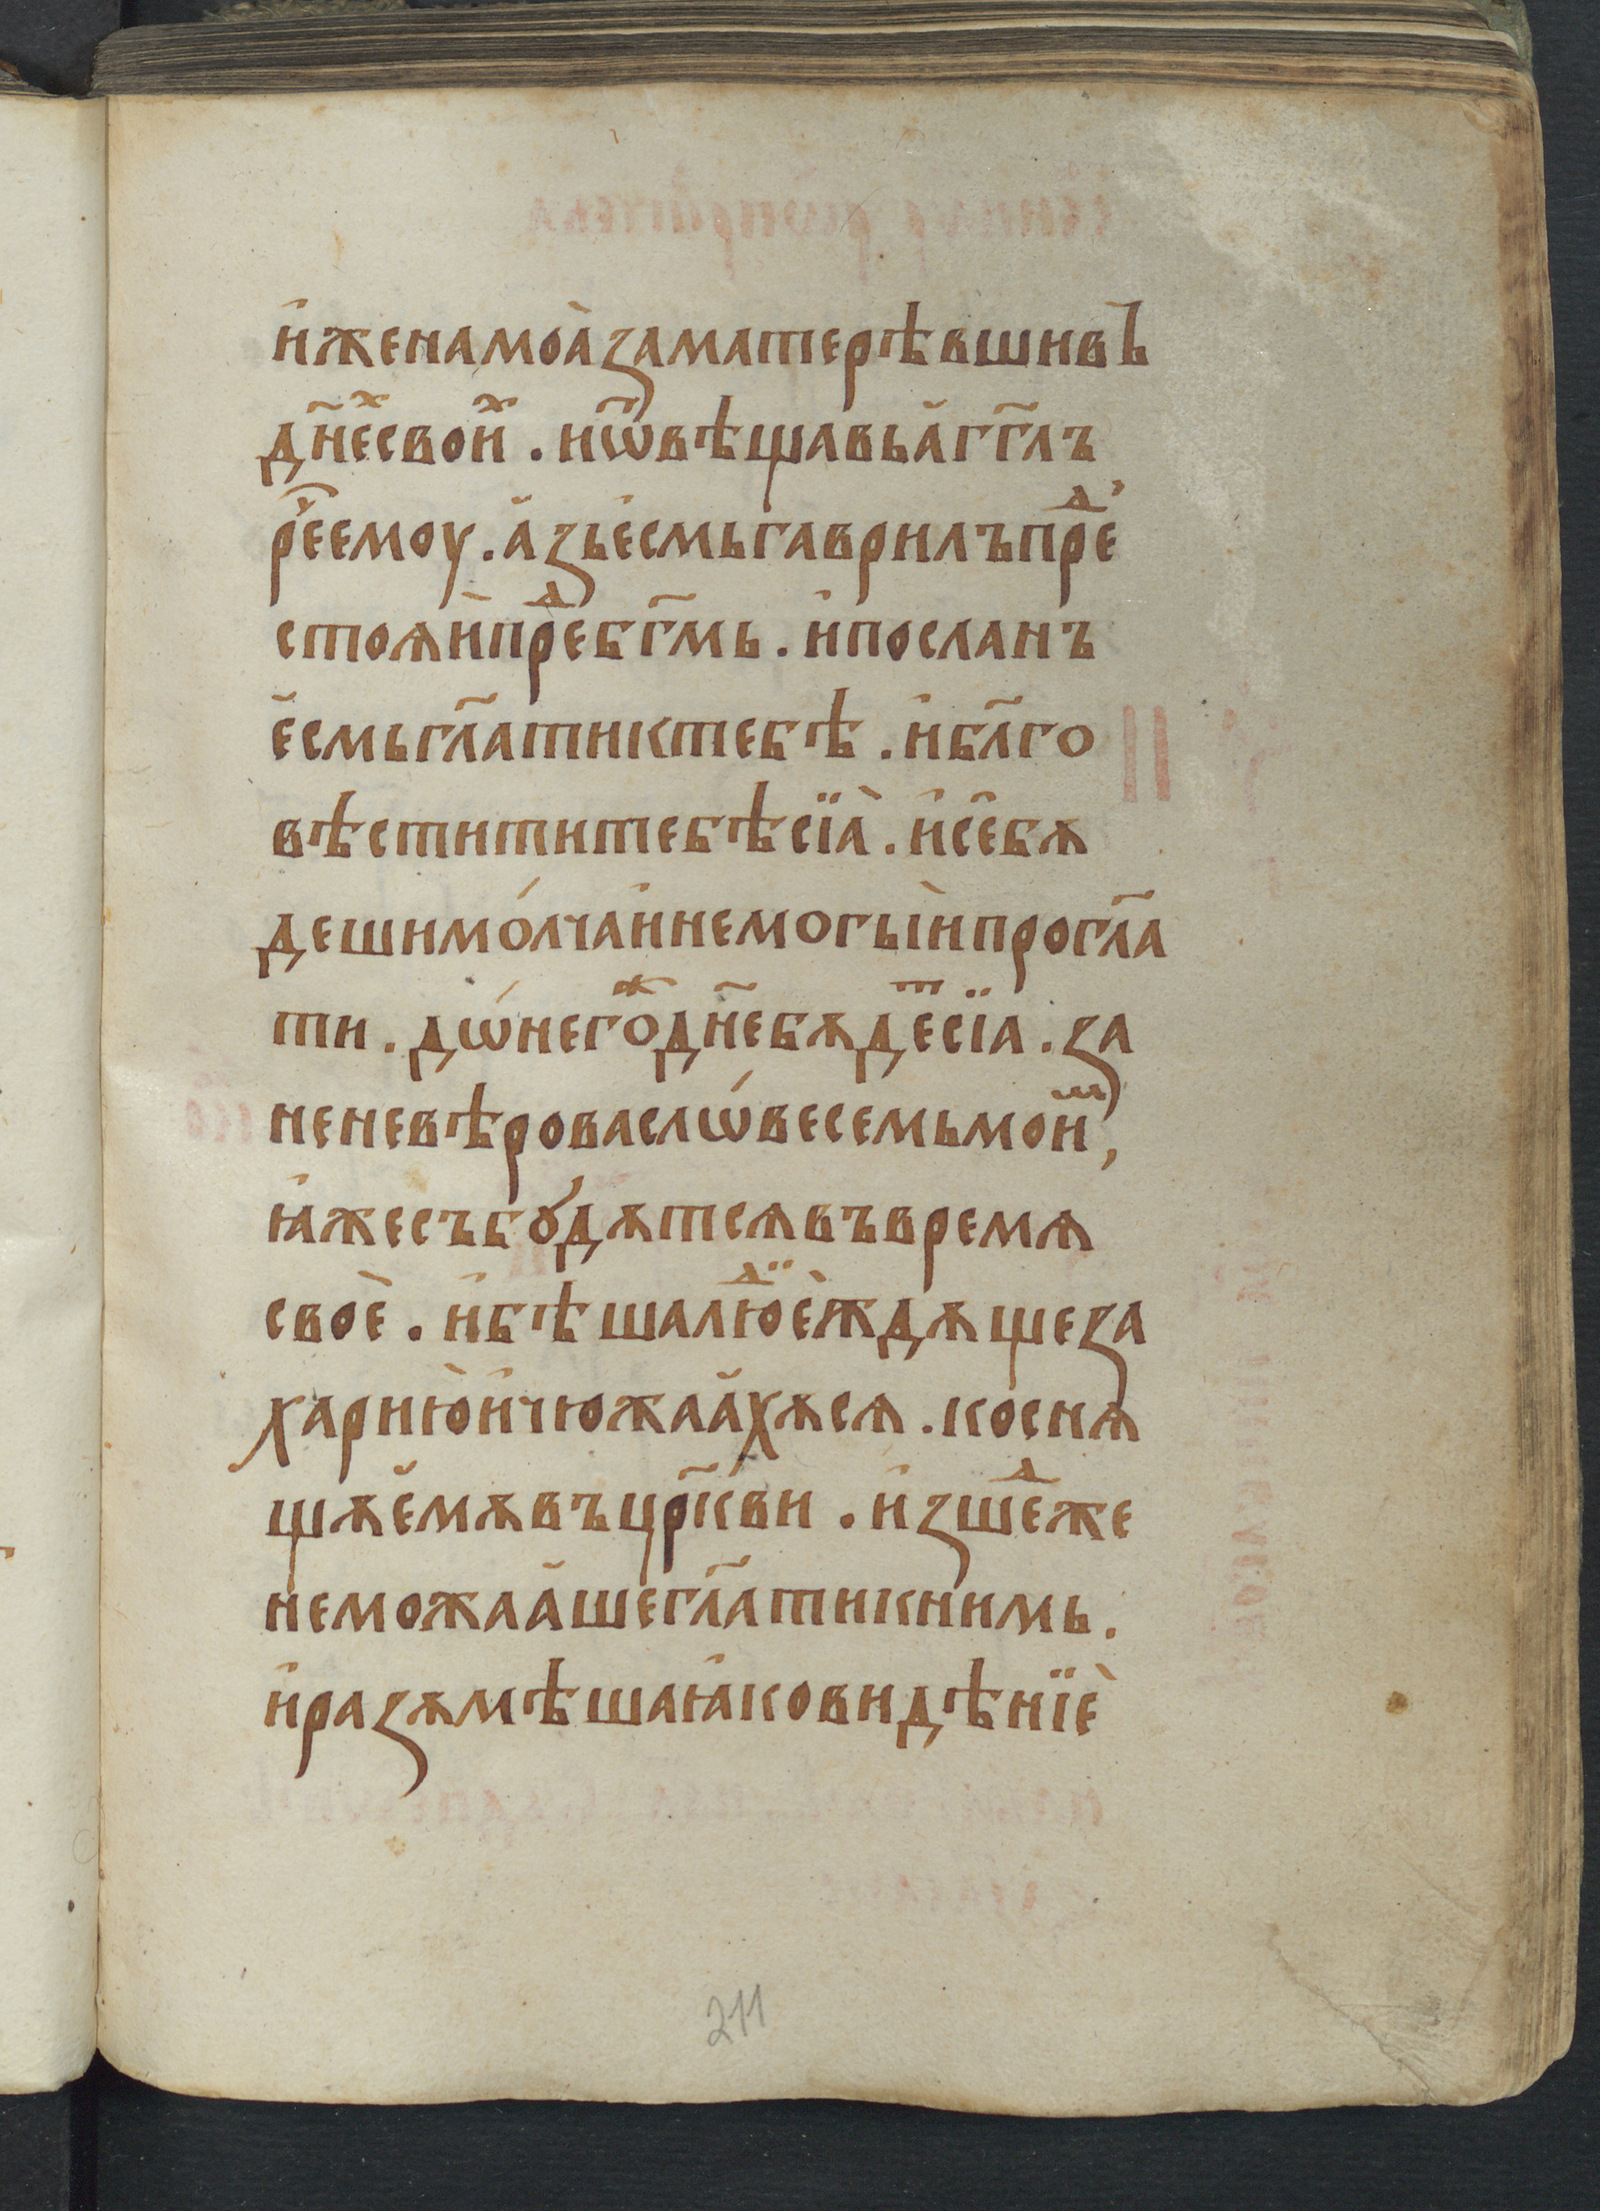 и҆женамоа̀заматерѣвшивъ
дн҃еⷯсвоиⷯ. иѿвѣщавьа҆гг҃лъ
рⷱ҇еемоу. а҆зье҆смьгаврилъпрⷣе
стоѧи҆прⷣебг҃мь. и҆посланъ
е҆смьгл҃атиктебѣ. и҆бл҃го
вѣстититебѣсїа̀. и҆се҆бѫ
дешимо́лчаи҆немогыи҆прогл҃а
ти. дѡ́негоⷤдн҃ебѫдеⷮсїа. за
неневѣровасло́весемьмоиⷨ,
ꙗ҆жесъбꙋдѫтсѧвъвремѧ
своѐ. и҆бѣшалюⷣе҆ждѫщеза
харию҆и҆чюжаа҆хѫсѧ. коснѧ
щѫе҆мѫвъцр҃кви. и҆зшеⷣже
неможаа҆шегл҃атикнимь.
и҆разѫмѣшаꙗ҆ковидѣнїѐ
211